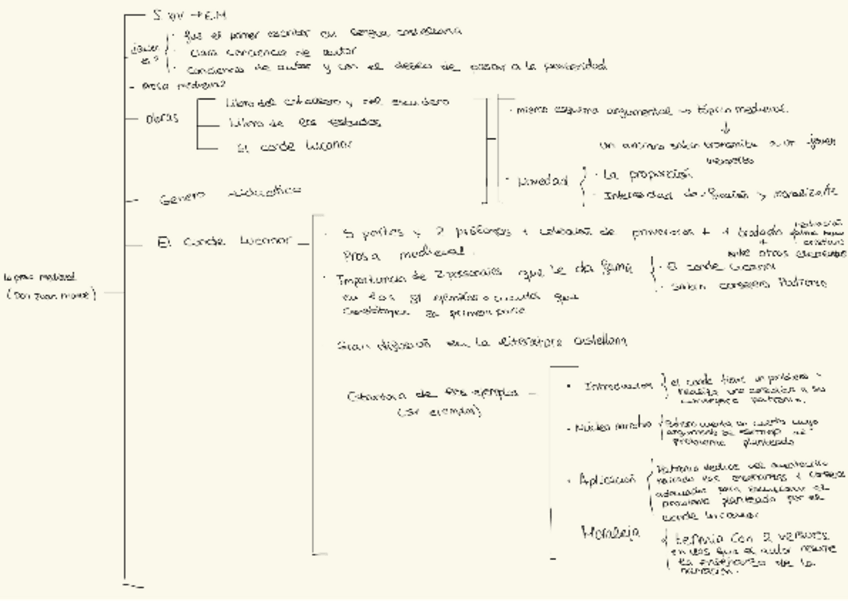 S. XIV → E.M
¿Quién es?
· fue el primer escritor en lengua castellana
· clara conciencia de autor
· conciencia de autor y con el deseo de pasar a la posteridad
- prosa medieval
- Obras
Libro del caballero y del escudero
Libro de los estados
El conde lucanor
· mismo esquema argumental → tópico medieval.
un anciano sabio transmite a un joven
· Novedad
· La proporción
· Intensidad de y moralizante
- Género didáctico
La prosa medieval
(Don Juan Manuel)
- El Conde Lucanor
· 5 partes y 2 prólogos + colección de proverbios + tratado
entre otros elementos
Prosa medieval.
· Importancia de 2 personajes que le da fama
en los 51 ejemplos o cuentos que
constituyen la primera parte
· El conde lucanor
· Sabio consejero Patronio
Gran difusión en la literatura castellana
Estructura de los ejemplos
(51 ejemplos)
· Introducción
el conde tiene un problema y
realiza una consulta a su
consejero patronio.
· Núcleo narrativo
Patronio cuenta un cuento cuyo
argumento es al
problema planteado
· Aplicación
Patronio deduce del cuento
las enseñanzas y consejos
adecuados para solucionar el
problema planteado por el
conde lucanor
Moraleja
termina con 2 versos
en los que el autor resume
la enseñanza de la
narración.